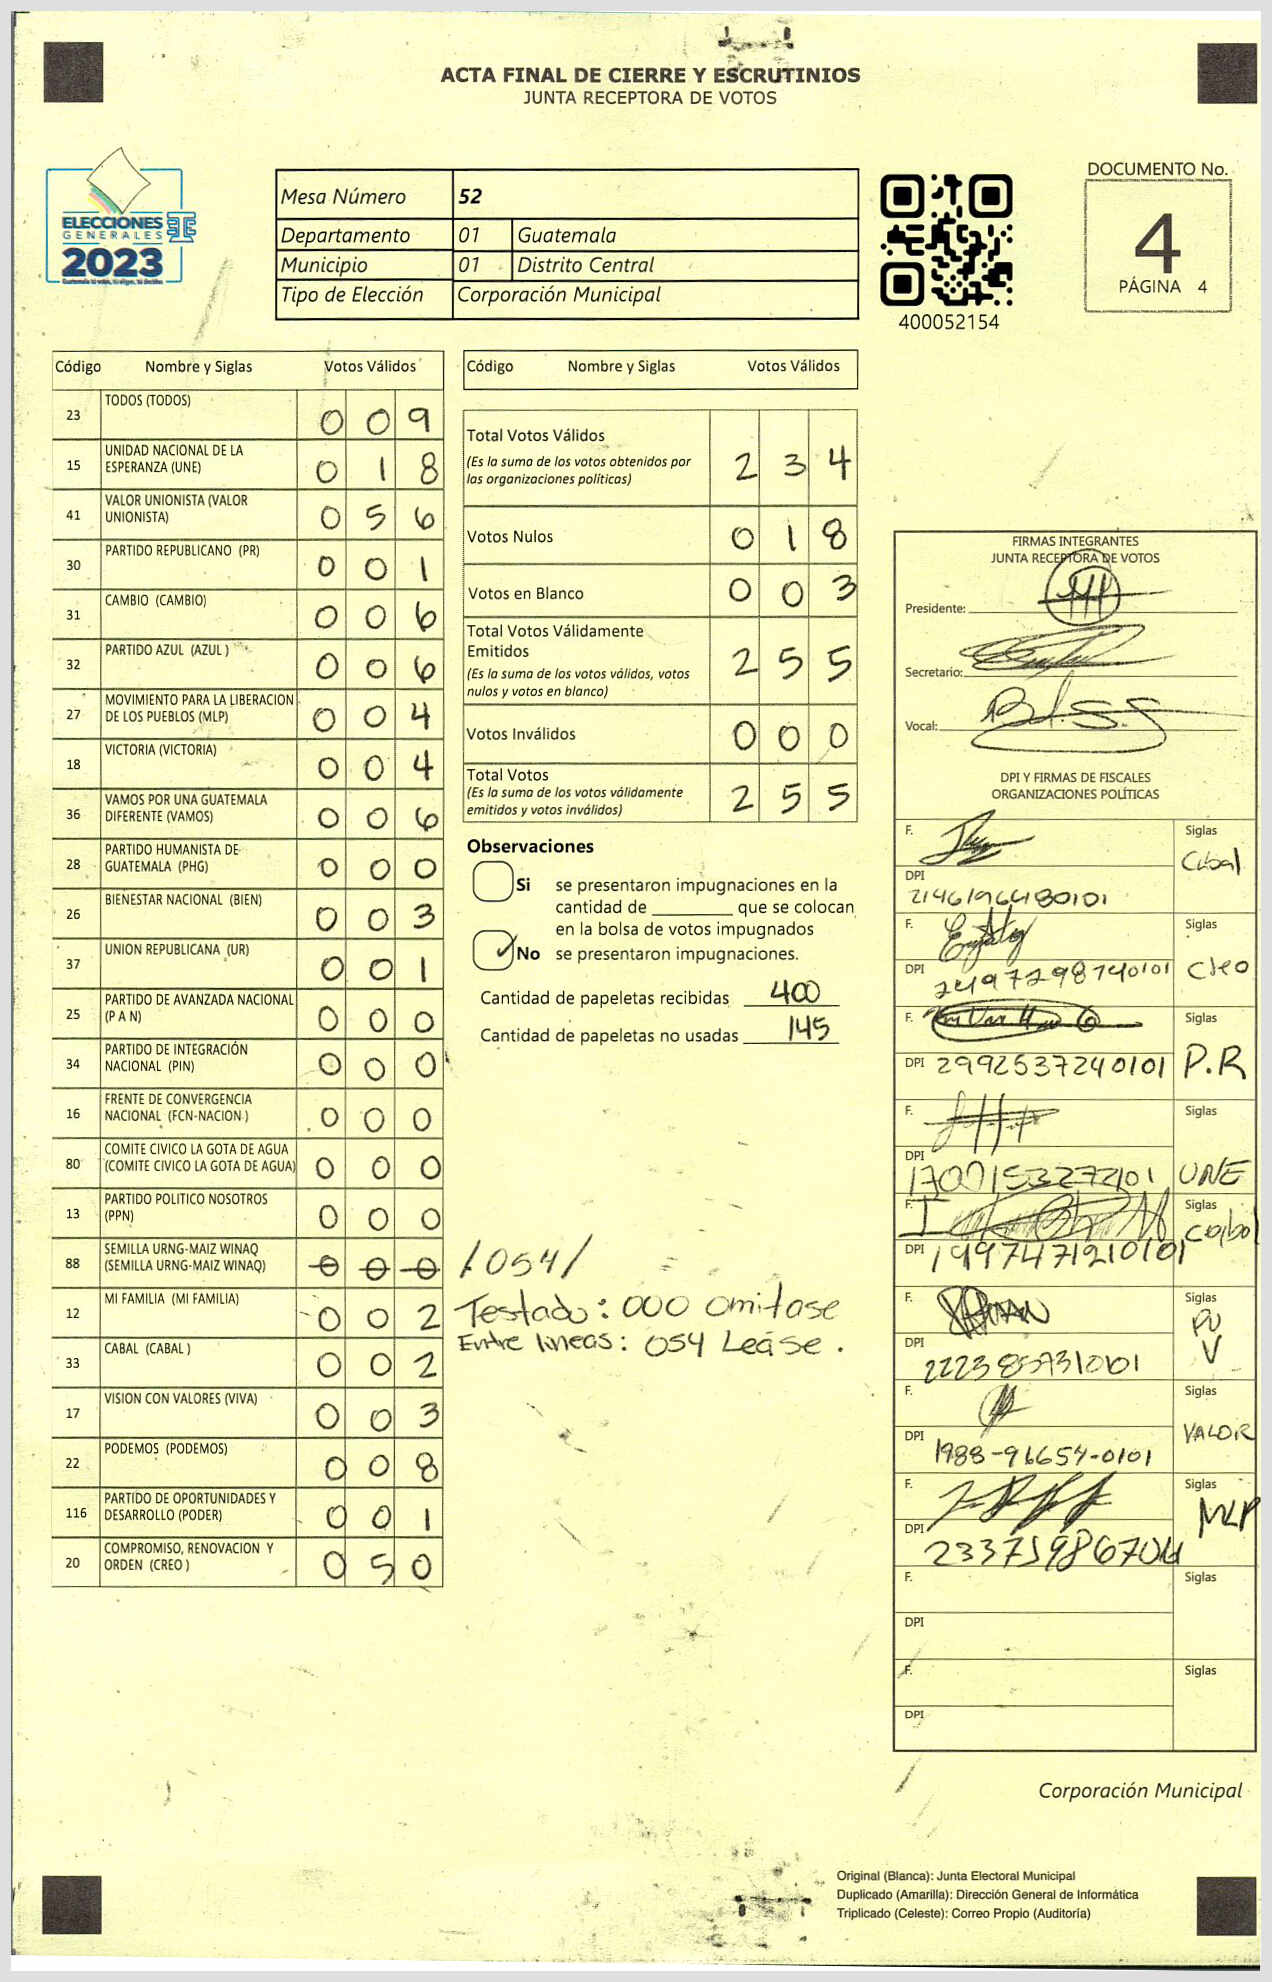 ACTA FINAL DE CIERRE Y ESCRUTINIOS
JUNTA RECEPTORA DE VOTOS
ELECCIONES
GENERALES
2023
Mesa Número 52
Departamento 01 Guatemala
Municipio 01 Distrito Central
Tipo de Elección Corporación Municipal
400052154
DOCUMENTO No.
4
PÁGINA 4
Código Nombre y Siglas Votos Válidos
23 TODOS (TODOS) 0 0 9
15 UNIDAD NACIONAL DE LA
ESPERANZA (UNE) 0 1 8
41 VALOR UNIONISTA (VALOR
UNIONISTA) 0 5 6
30 PARTIDO REPUBLICANO (PR) 0 0 1
31 CAMBIO (CAMBIO) 0 0 6
32 PARTIDO AZUL (AZUL ) 0 0 6
27 MOVIMIENTO PARA LA LIBERACION
DE LOS PUEBLOS (MLP) 0 0 4
18 VICTORIA (VICTORIA) 0 0 4
36 VAMOS POR UNA GUATEMALA
DIFERENTE (VAMOS) 0 0 6
28 PARTIDO HUMANISTA DE
GUATEMALA (PHG) 0 0 0
26 BIENESTAR NACIONAL (BIEN) 0 0 3
37 UNION REPUBLICANA (UR) 0 0 1
25 PARTIDO DE AVANZADA NACIONAL
(P A N) 0 0 0
34 PARTIDO DE INTEGRACIÓN
NACIONAL (PIN) 0 0 0
16 FRENTE DE CONVERGENCIA
NACIONAL (FCN-NACION ) 0 0 0
80 COMITE CIVICO LA GOTA DE AGUA
(COMITE CIVICO LA GOTA DE AGUA) 0 0 0
13 PARTIDO POLITICO NOSOTROS
(PPN) 0 0 0
88 SEMILLA URNG-MAIZ WINAQ
(SEMILLA URNG-MAIZ WINAQ) 0 0 0 /054/
12 MI FAMILIA (MI FAMILIA) 0 0 2
33 CABAL (CABAL ) 0 0 2
17 VISION CON VALORES (VIVA) 0 0 3
22 PODEMOS (PODEMOS) 0 0 8
116 PARTIDO DE OPORTUNIDADES Y
DESARROLLO (PODER) 0 0 1
20 COMPROMISO, RENOVACION Y
ORDEN (CREO ) 0 5 0
Código Nombre y Siglas Votos Válidos
Total Votos Válidos
(Es la suma de los votos obtenidos por
las organizaciones políticas) 2 3 4
Votos Nulos 0 1 8
Votos en Blanco 0 0 3
Total Votos Válidamente
Emitidos
(Es la suma de los votos válidos, votos
nulos y votos en blanco) 2 5 5
Votos Inválidos 0 0 0
Total Votos
(Es la suma de los votos válidamente
emitidos y votos inválidos) 2 5 5
Observaciones
Si se presentaron impugnaciones en la
cantidad de ________ que se colocan
en la bolsa de votos impugnados
No se presentaron impugnaciones.
Cantidad de papeletas recibidas 400
Cantidad de papeletas no usadas 145
Testado: 000 omitase
Entre lineas: 054 Leáse.
FIRMAS INTEGRANTES
JUNTA RECEPTORA DE VOTOS
Presidente:
Secretario:
Vocal:
DPI Y FIRMAS DE FISCALES
ORGANIZACIONES POLÍTICAS
F. Siglas
DPI
F. Siglas
DPI
F. Siglas
DPI 2992537240101 P.R
F. Siglas
DPI 1700153272101 UNE
F. Siglas
DPI 1997471210101
F. Siglas
DPI
F. Siglas
DPI 1988-96654-0101 VALOR
F. Siglas
DPI MLP
F. Siglas
DPI
F. Siglas
DPI
Corporación Municipal
Original (Blanca): Junta Electoral Municipal
Duplicado (Amarilla): Dirección General de Informática
Triplicado (Celeste): Correo Propio (Auditoría)